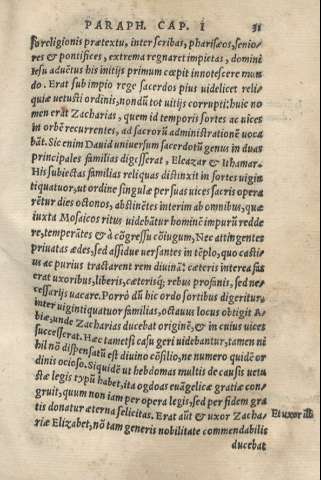 PARAPH. CAP. I 31
so religionis prætextu, inter scribas, pharisæos, senio-
res & pontifices, extrema regnaret impietas, domini
Iesu aduẽtus his initijs primum cœpit innotescere mun
do. Erat sub impio rege sacerdos pius uidelicet reli-
quiæ uetusti ordinis, nondũ tot uitijs corrupti: huic no
men erat Zacharias, quem id temporis sortes ac uices
in orbẽ recurrentes, ad sacrorũ administrationẽ uoca
bãt. Sic enim Dauid uniuersum sacerdotũ genus in duas
principales familias digesserat, Eleazar & Ithamar.
His subiectas familias reliquas distinxit in sortes uigin
tiquatuor, ut ordine singulæ per suas uices sacris opera
rẽtur dies octonos, abstinẽtes interim ab omnibus, quæ
iuxta Mosaicos ritus uidebãtur hominẽ impurũ redde
re, temperãtes & à cõgressu cõiugum, Nec attingentes
priuatas ædes, sed assidue uersantes in tẽplo, quo castius
ac purius tractarent rem diuinã: cæteris interea fas
erat uxoribus, liberis, cæterisq; rebus profanis, sed ne-
cessarijs uacare. Porrò dũ hic ordo sortibus digeritur,
inter uiginti quatuor familias, octauus locus obtigit A-
biæ, unde Zacharias ducebat originẽ, & in cuius uices
successerat. Hæc tametsi casu geri uidebantur, tamen ni
hil nõ dispensatũ est diuino cõsilio, ne numero quidẽ or
dinis ocioso. Siquidẽ ut hebdomas multis de causis uetu
stæ legis typũ habet, ita ogdoas euãgelicæ gratiæ con-
gruit, quum non iam per opera legis, sed per fidem gra
tis donatur æterna felicitas. Erat aũt & uxor Zacha- Et uxor illi
riæ Elizabet, nõ tam generis nobilitate commendabilis
ducebat